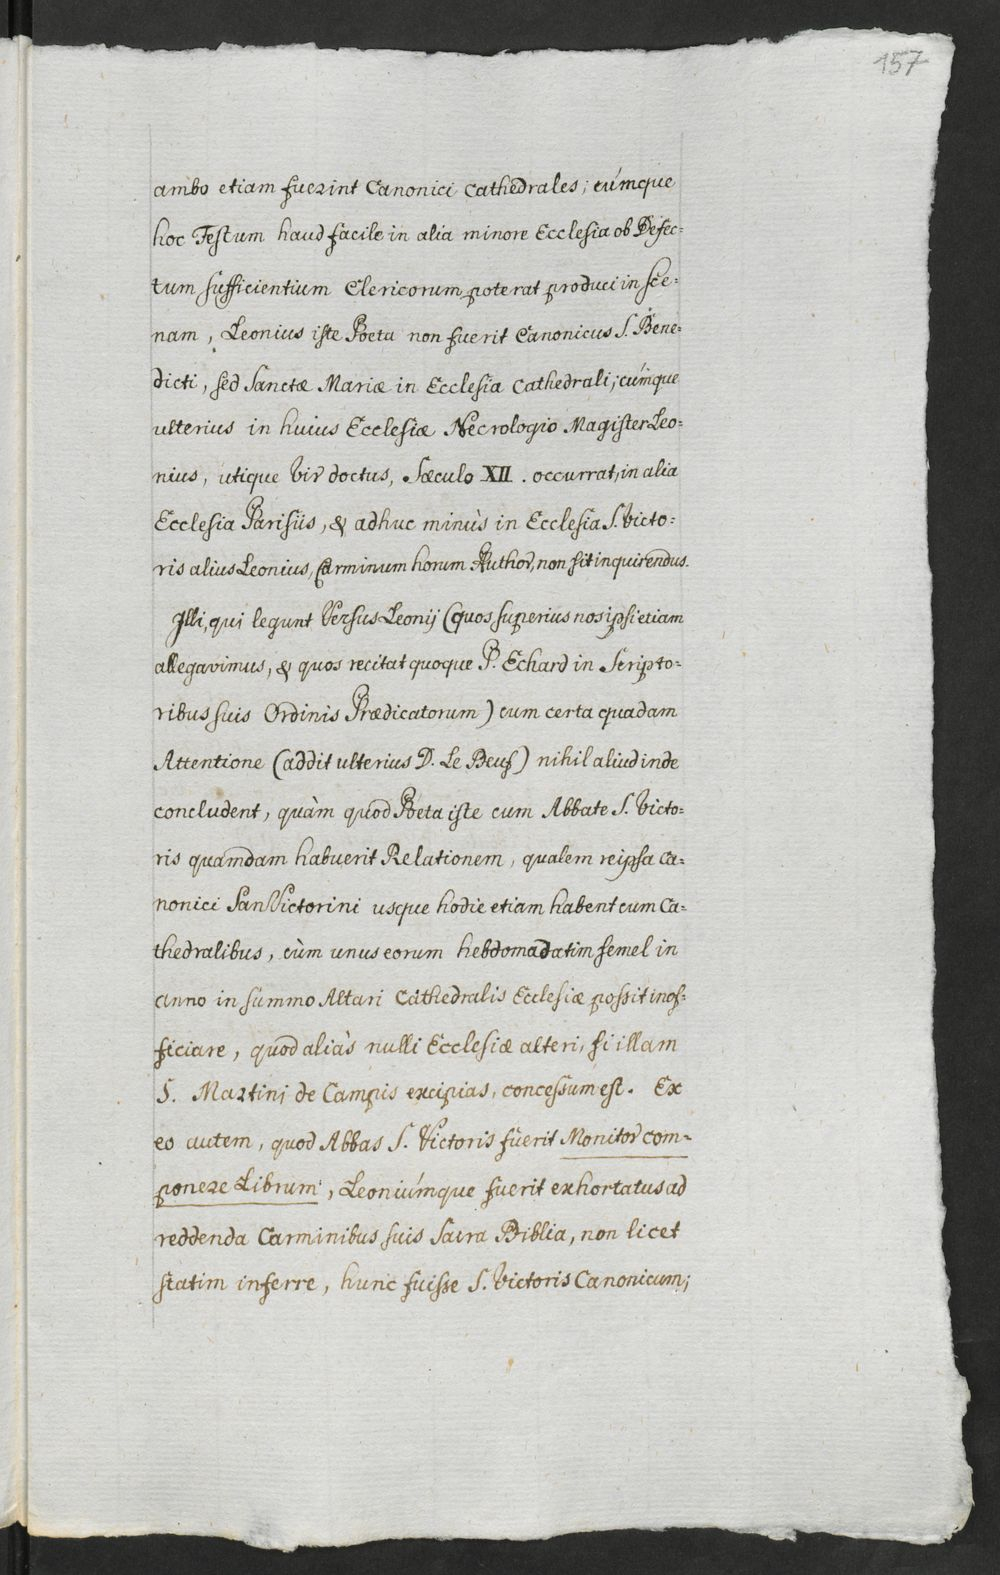 157
ambo etiam fuerint Canonici Cathedrales; cúmque
hoc Festum haud facile in alia minore Ecclesia ob Defec=
tum sufficientium Clericorum poterat produci in sce=
nam, Leonius iste Poeta non fuerit Canonicus S. Bene=
dicti, sed Sanctæ Mariæ in Ecclesia Cathedrali; cúmque
ulterius in huius Ecclesiæ Necrologio Magister Leo=
nius, utique Vir doctus, Sæculo XII. occurrat, in alia
Ecclesia Parisiis, & adhuc minùs in Ecclesia S. Victo=
ris alius Leonius, Carminum horum Author, non sit inquirendus.
Illi, qui legunt Versus Leonij (quos superius nos ipsi etiam
allegavimus, & quos recitat quoque P. Echard in Scripto=
ribus suis Ordinis Prædicatorum) cum certa quadam
Attentione (addit ulterius D. Le Beuf) nihil aliud inde
concludent, quàm quod Poeta iste cum Abbate S. Victo=
ris quamdam habuerit Relationem, qualem reipsa Ca=
nonici SanVictorini usque hodie etiam habent cum Ca=
thedralibus, cùm unus eorum hebdomadatim semel in
anno in summo Altari Cathedralis Ecclesiæ possit inof=
ficiare, quod aliàs nulli Ecclesiæ alteri, si illam
S. Martini de Campis excipias, concessum est. Ex
eo autem, quod Abbas S. Victoris fuerit Monitor com=
ponere Librum, Leoniúmque fuerit exhortatus ad
reddenda Carminibus suis Sacra Biblia, non licet
statim inferre, hunc fuisse S. Victoris Canonicum;